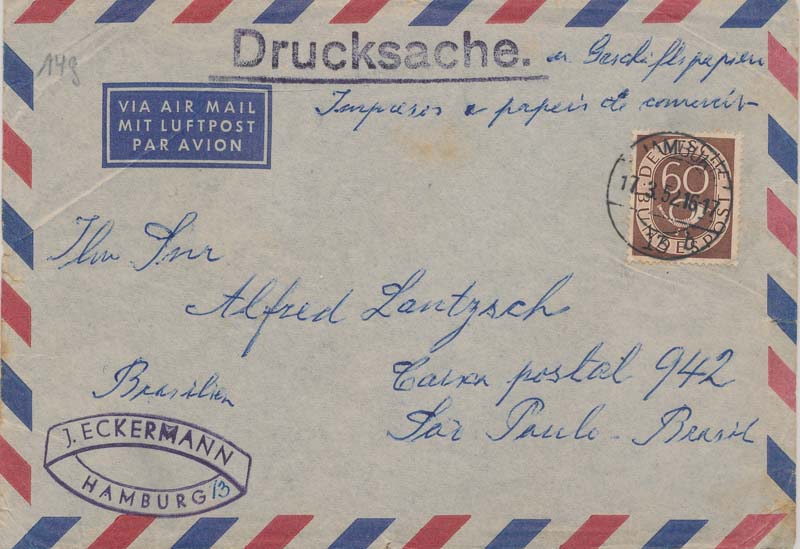 Drucksache. u Geschäftspapiere
14g
Impressos e papeis de comercio
VIA AIR MAIL
MIT LUFTPOST
PAR AVION
DEUTSCHE BUNDESPOST
60
HAMBURG
17.3.52.16-17
Ilmo Snr
Alfred Lantzsch
Brasilien
Caixa postal 942
São Paulo - Brasil
J. ECKERMANN
HAMBURG 13